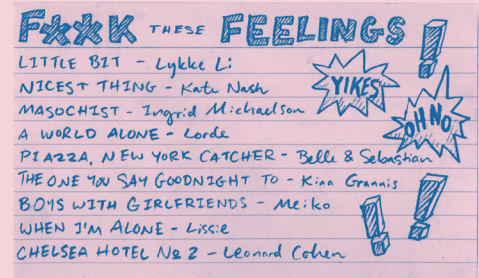 F**K THESE FEELINGS
LITTLE BIT - Lykke Li
NICEST THING - Kate Nash
MASOCHIST - Ingrid Michaelson
A WORLD ALONE - Lorde
PIAZZA, NEW YORK CATCHER - Belle & Sebastian
THE ONE YOU SAY GOODNIGHT TO - Kina Grannis
BOYS WITH GIRLFRIENDS - Meiko
WHEN I'M ALONE - Lissie
CHELSEA HOTEL No 2 - Leonard Cohen
YIKES
OH NO
!
!
!